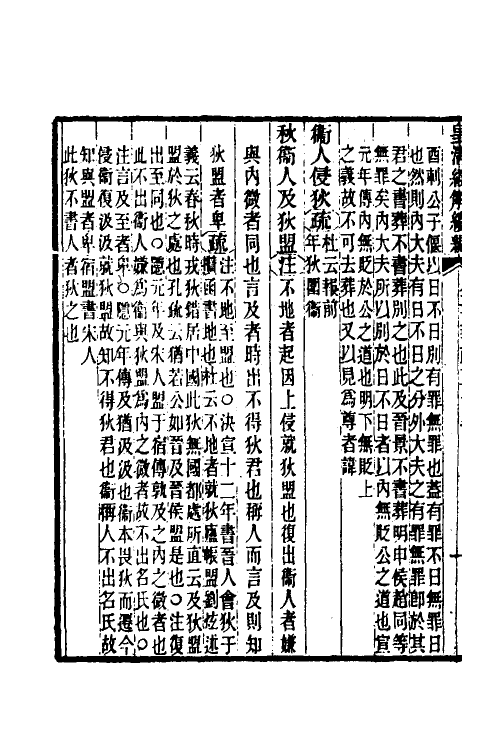 皇清經解續編
酉刺公子偃以日不日別有罪無罪也蓋有罪不日無罪日
也然則內大夫有日不日之分外大夫之有罪無罪卽於其
君之書葬不書葬別之也此及晉景不書葬明申侯趙同等
無罪矣內大夫所以別於日不日者以內無貶公之道也宣
元年傳內無貶於公之道也明下無貶上
之義故不可去葬也又以見爲尊者諱
衞人侵狄疏杜云報前
年狄圍衞
秋衞人及狄盟注不地者起因上侵就狄盟也復出衞人者嫌
與內微者同也言及者時出不得狄君也稱人而言及則知
狄盟者卑疏注不地至盟也○決宣十二年書晉人會狄于
攢函書地也杜云不地者就狄廬帳盟劉炫述
義云春秋時戎狄錯居中國此狄無國都處所直云及狄盟
盟於狄之處也孔疏云猶若公如晉及晉侯盟是也○注復
出至同也○隱元年及宋人盟于宿傳孰及之內之微者也
此不出衞人嫌爲衞與狄盟爲內之微者故不出名氏也○
注言及至者卑○隱元年傳及猶汲汲也衞本畏狄而遷今
侵衞復汲汲就狄盟故知不得狄君也衞稱人不出名氏故
知與盟者卑宿盟書宋人
此狄不書人者狄之也